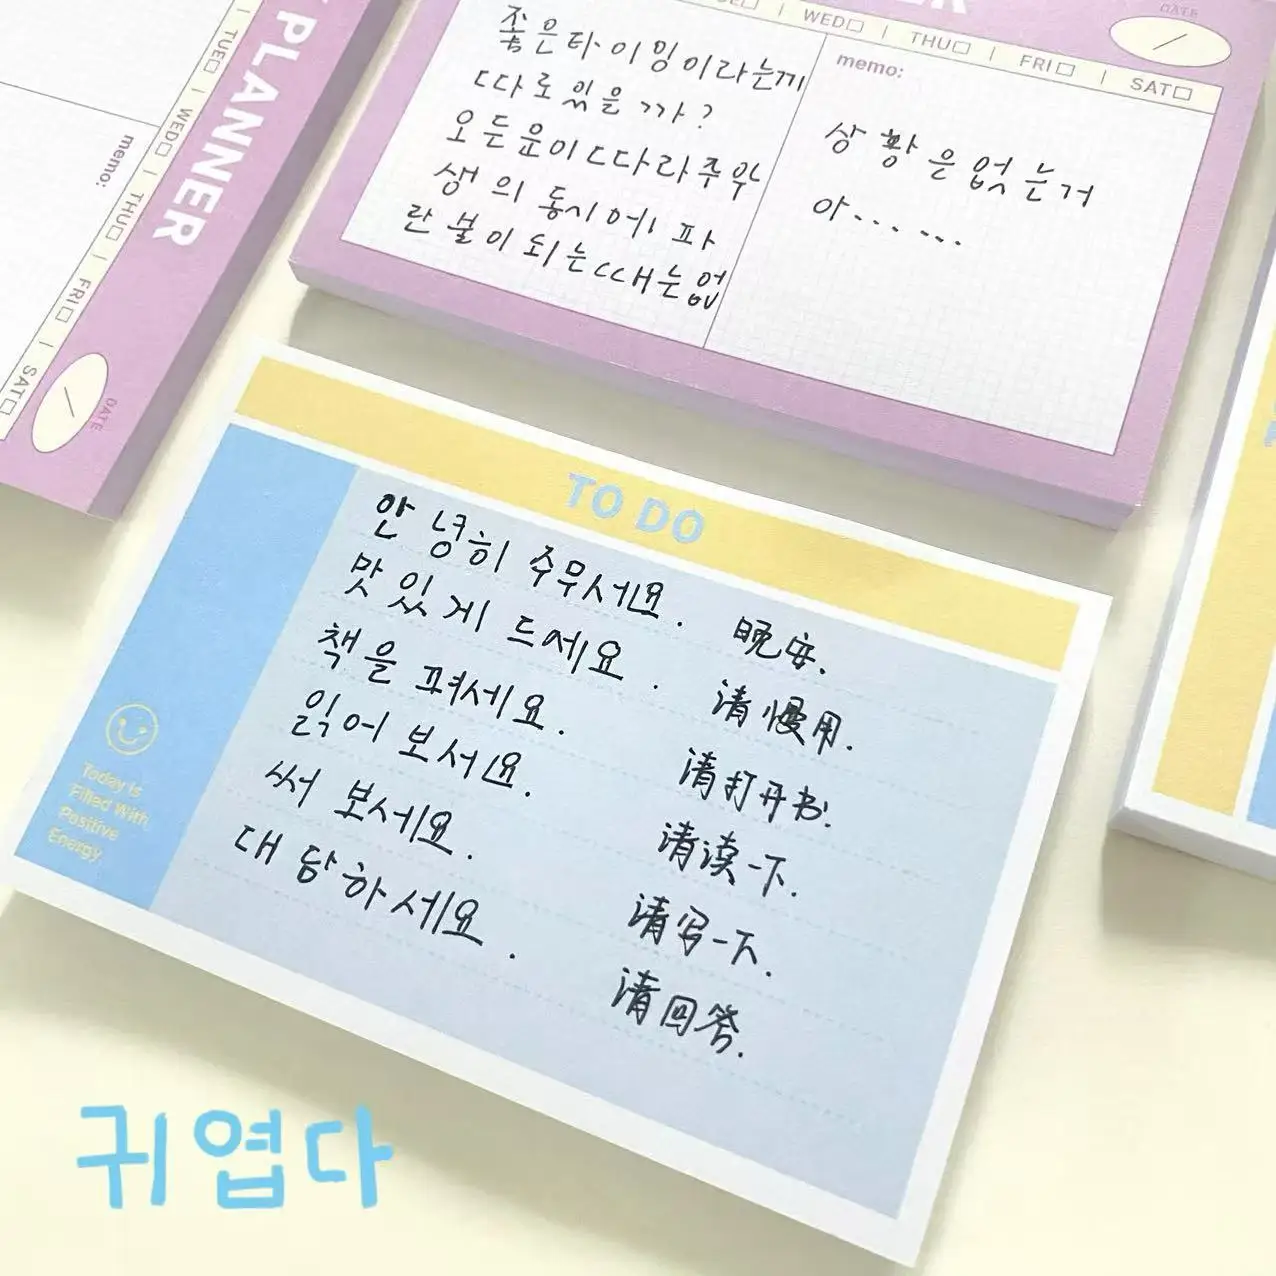 PLANNER
TUE□ | WED□ | THU□ | FRI□ | SAT□
memo:
DATE
/
WED□ | THU□ | FRI□ | SAT□
DATE
/
좋은타이밍이라는게
따로있을까?
모든운이따라주악
생의동시에파
란불이되는때는없
memo:
상황은없는거
야......
TO DO
안녕히 주무세요. 晚安.
맛있게 드세요. 请慢用.
책을 펴세요. 请打开书.
읽어 보세요. 请读一下.
써 보세요. 请写一下.
대답하세요. 请回答.
Today is
Filled With
Positive
Energy
귀엽다